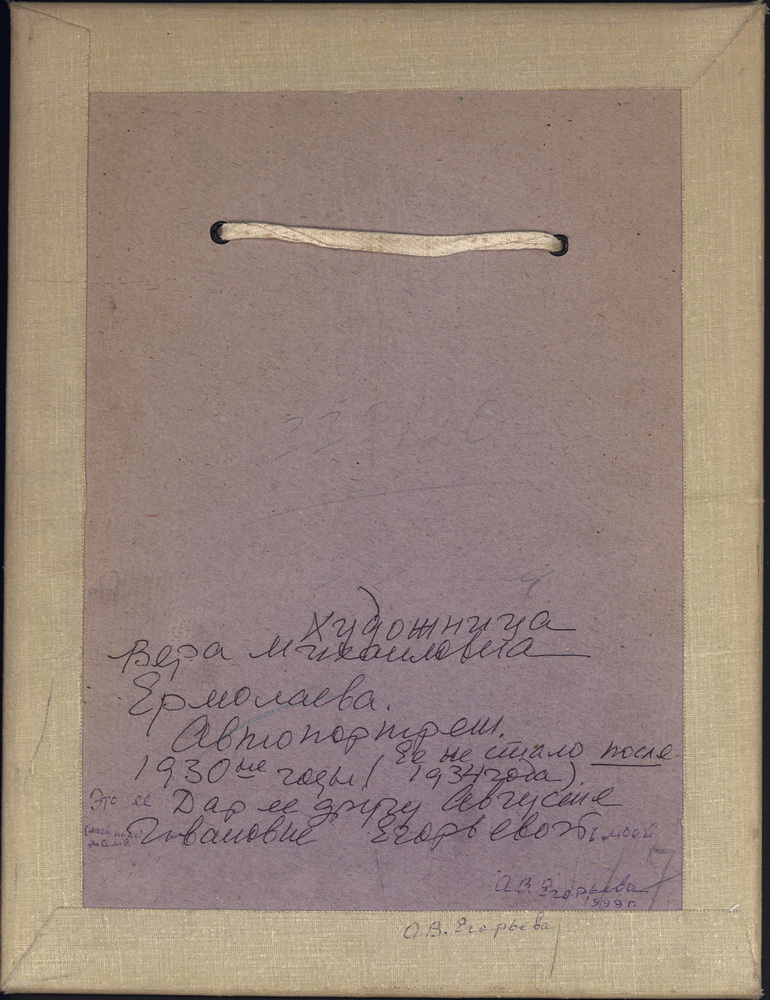 Художница
Вера Михайловна
Ермолаева.
Автопортрет.
1930ые годы (Ее не стало после
1934 года).
Это ее Дар ее другу Августе
Ивановне Егорьевой,
маме моей
О.В. Егорьева
1999 г.
О.В. Егорьева